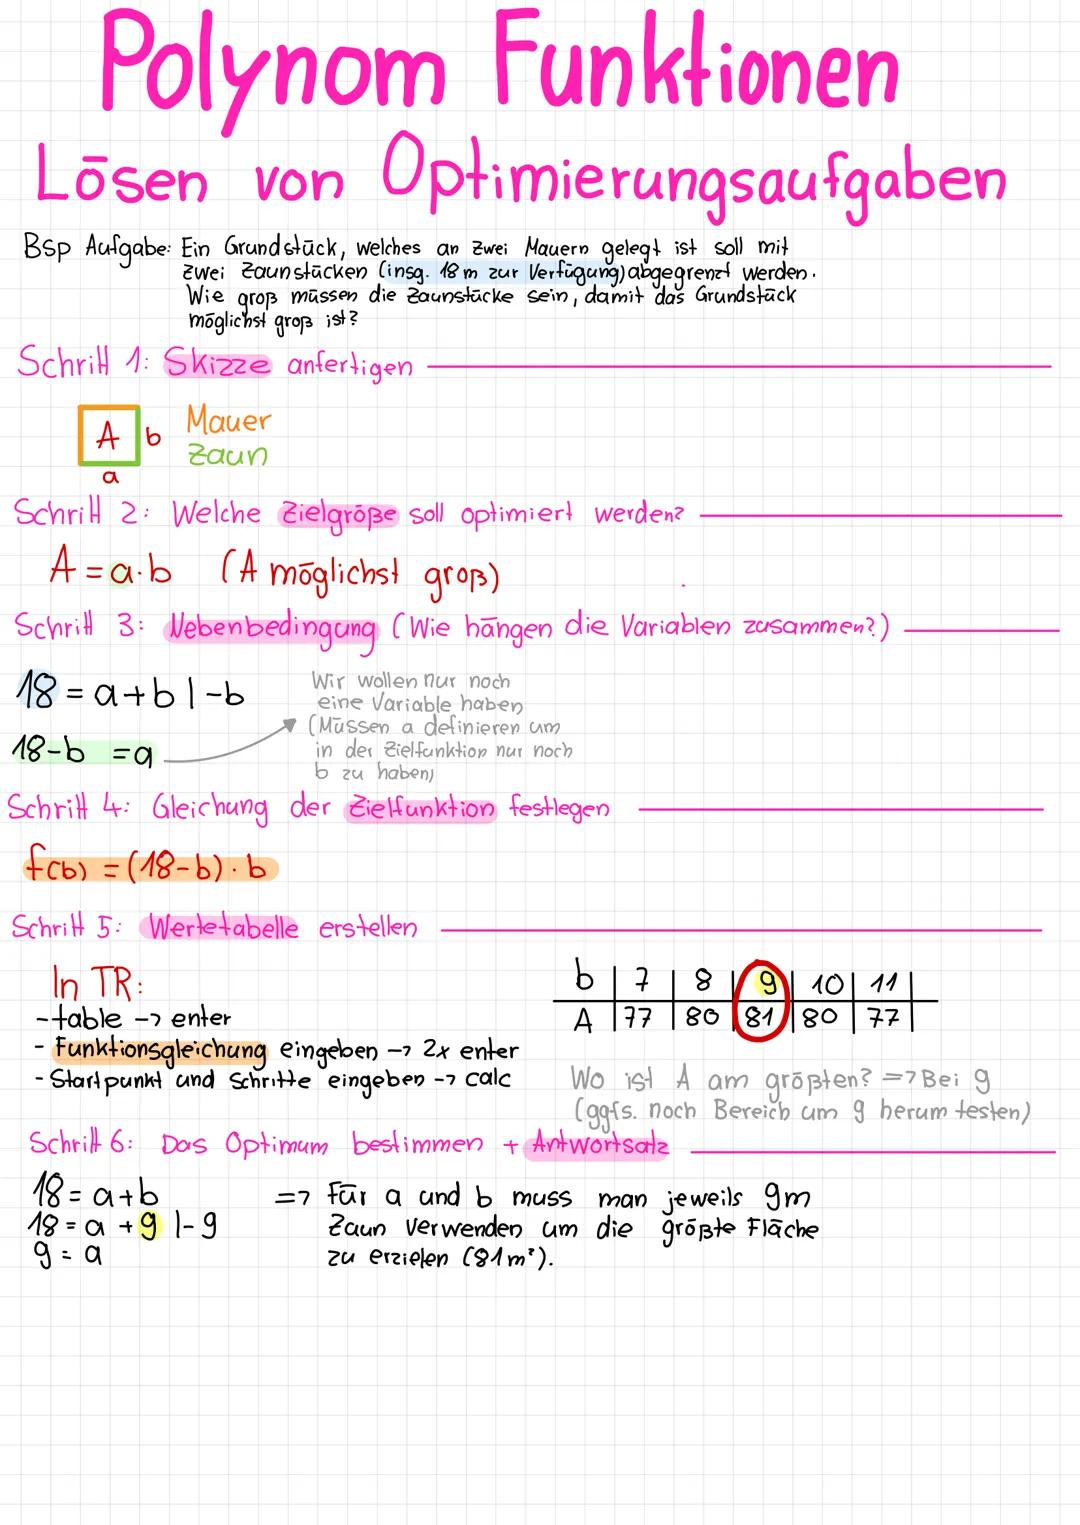 Polynom Funktionen
Lösen von Optimierungsaufgaben
Bsp Aufgabe: Ein Grundstück, welches an zwei Mauern gelegt ist soll mit
zwei Zaunstücken (insg. 18 m zur Verfügung) abgegrenzt werden.
Wie groß müssen die Zaunstücke sein, damit das Grundstück
möglichst groß ist?
Schritt 1: Skizze anfertigen
A b Mauer
Zaun
a
Schritt 2: Welche Zielgröße soll optimiert werden?
A = a·b (A möglichst groß)
Schritt 3: Nebenbedingung (Wie hängen die Variablen zusammen?)
18 = a+b | -b
18-b = a
Wir wollen nur noch
eine Variable haben
(Müssen a definieren um
in der Zielfunktion nur noch
b zu haben)
Schritt 4: Gleichung der Zielfunktion festlegen
f(b) = (18-b)·b
Schritt 5: Wertetabelle erstellen
In TR:
- table -> enter
- Funktionsgleichung eingeben -> 2x enter
- Startpunkt und Schritte eingeben -> calc
b | 7 | 8 | 9 | 10 | 11 |
A | 77 | 80 | 81 | 80 | 77 |
Wo ist A am größten? => Bei 9
(ggfs. noch Bereich um 9 herum testen)
Schritt 6: Das Optimum bestimmen + Antwortsatz
18 = a+b
18 = a + 9 | -9
9 = a
=> Für a und b muss man jeweils 9m
Zaun verwenden um die größte Fläche
zu erzielen (81m²).